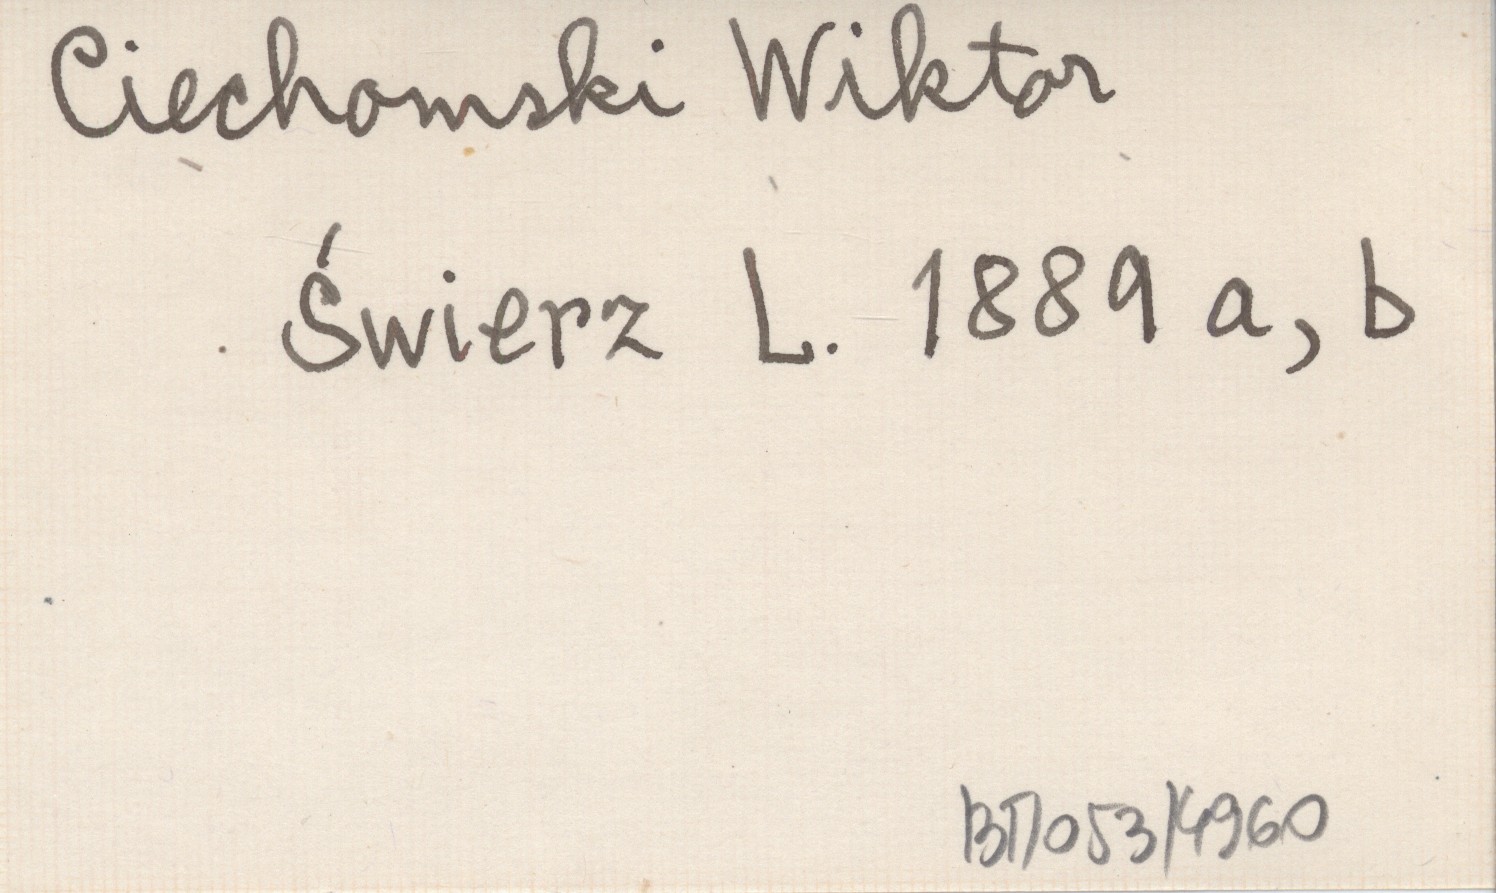 Ciechomski Wiktor
Świerz L. 1889 a, b
BT/053/4960